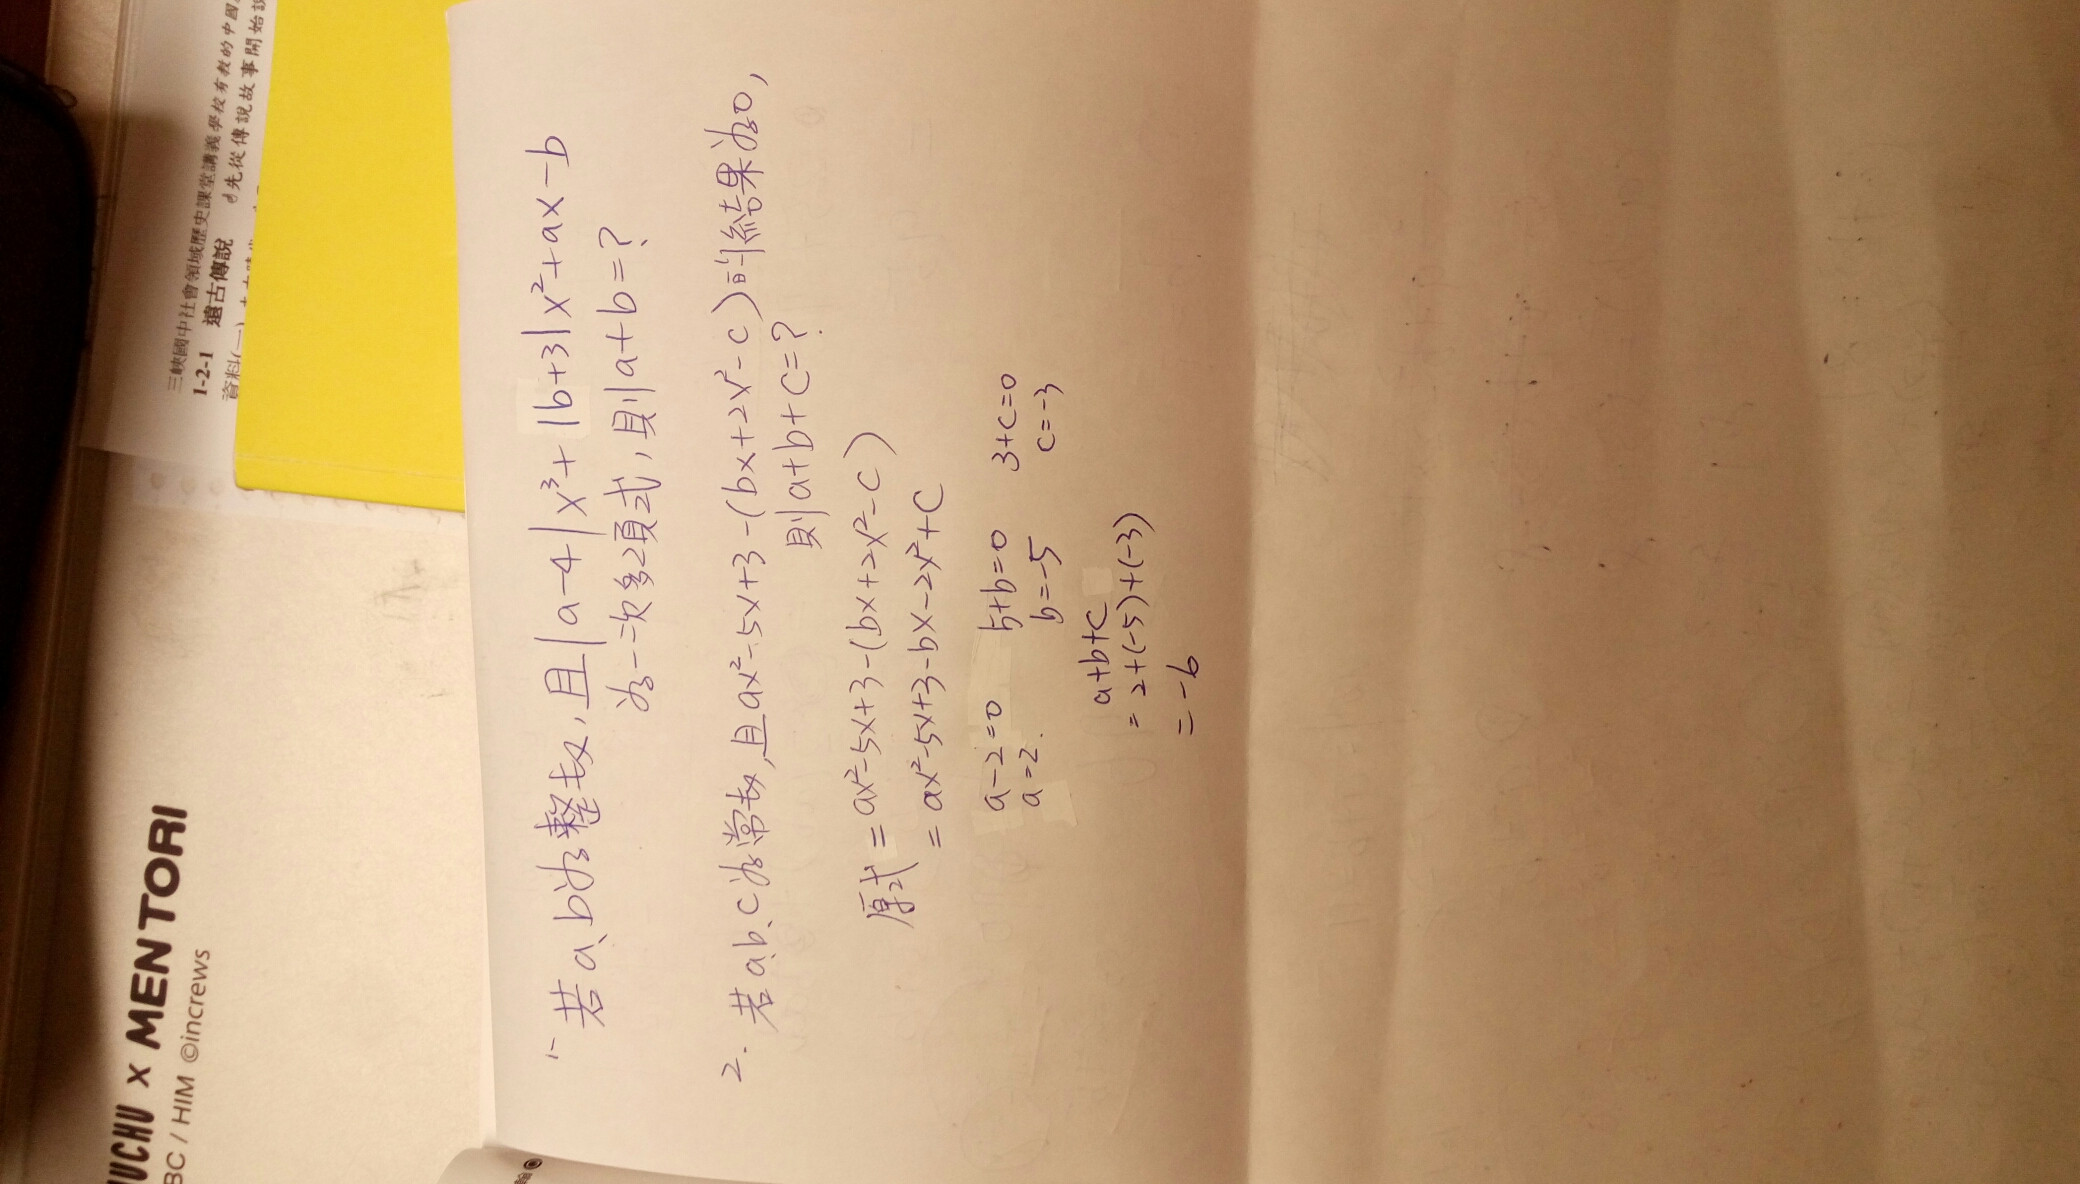 三峽國中社會領域歷史課堂講義
1-2-1 遠古傳說
先從傳說故事開始
UCHU x MENTORI
BC / HIM ©increws
1.
若a、b為整数,且|a-4|x³+|b+3|x²+ax-b
為一次多項式,則a+b=?
2. 若a、b、c為常数,且ax²-5x+3-(bx+2x²-c)的結果為0,
則a+b+c=?
原式=ax²-5x+3-(bx+2x²-c)
=ax²-5x+3-bx-2x²+c
a-2=0 5+b=0 3+c=0
a=2. b=-5 c=-3
a+b+c
=2+(-5)+(-3)
=-6